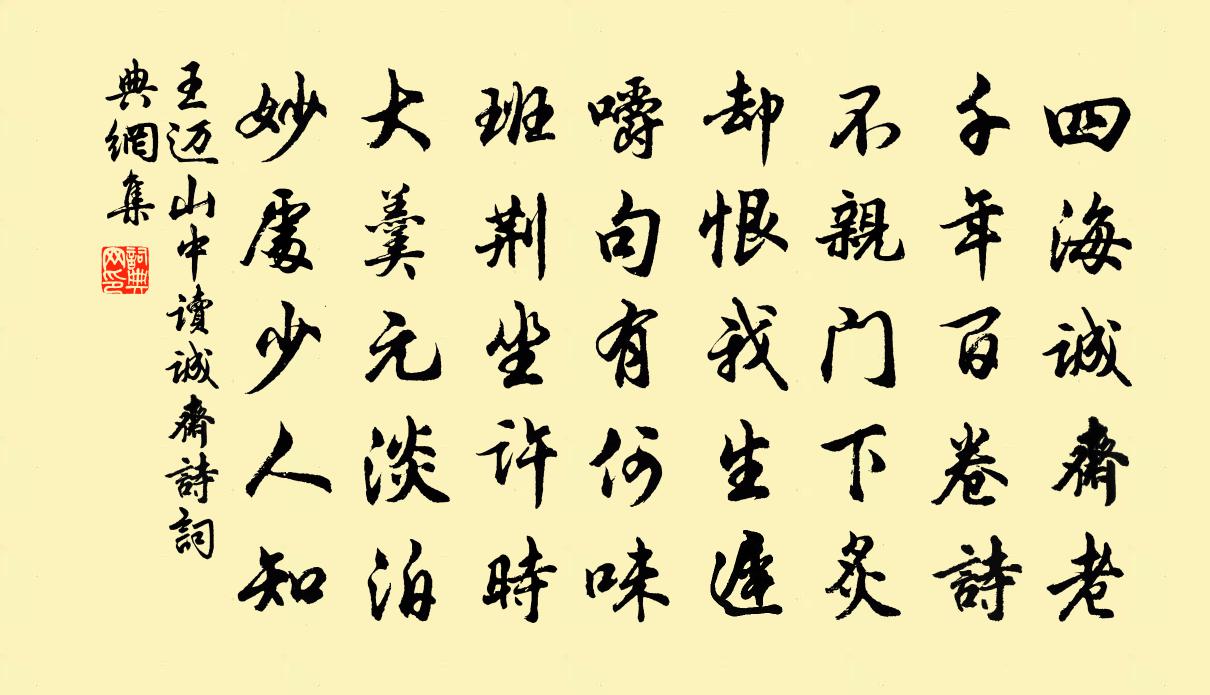 四海誠齋老
千年百卷詩
不親門下炙
却恨我生遲
嚼句有何味
班荆坐許時
大羹元淡泊
妙處少人知
王迈山中讀誠齋詩詞
典網集
詞典
网印